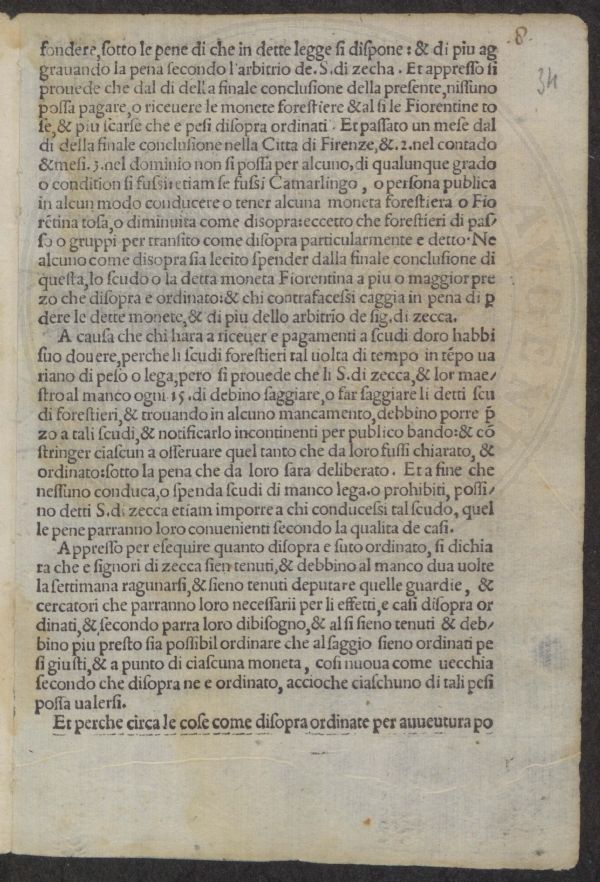 .8.
34
fondere,ſotto le pene di che in dette legge ſi diſpone: & di piu ag
grauando la pena ſecondo l'arbitrio de.S.di zecha. Et appreſſo ſi
prouede che dal di della finale concluſione della preſente,niſſuno
poſſa pagare,o riceuere le monete foreſtiere &al ſi le Fiorentine to
ſe,& piu ſcarſe che e peſi diſopra ordinati. Et paſſato un meſe dal
di della finale concluſione nella Citta di Firenze,&.2.nel contado
&meſi.3.nel dominio non ſi poſſa per alcuno,di qualunque grado
o condition ſi fuſſi:etiam ſe fuſſi Camarlingo, o perſona publica
in alcun modo conducere o tener alcuna moneta foreſtiera o Fio
rētina toſa,o diminuita come diſopra:eccetto che foreſtieri di paſ/
ſo o gruppi per tranſito come diſopra particularmente e detto. Ne
alcuno come diſopra ſia lecito ſpender dalla finale concluſione di
queſta,lo ſcudo o la detta moneta Fiorentina a piu o maggior pre
zo che diſopra e ordinato:& chi contrafaceſſi caggia in pena di ꝑ
dere le dette monete,& di piu dello arbitrio de ſig.di zecca.
A cauſa che chi hara a riceuer e pagamenti a ſcudi doro habbi
ſuo douere,perche li ſcudi foreſtieri tal uolta di tempo in tēpo ua
riano di peſo o lega,pero ſi prouede che li S.di zecca,& lor mae/
ſtro al manco ogni 15.di debino ſaggiare,o far ſaggiare li detti ſcu
di foreſtieri,& trouando in alcuno mancamento,debbino porre p̄
zo a tali ſcudi,& notificarlo incontinenti per publico bando:& cō
ſtringer ciaſcun a oſſeruare quel tanto che da loro fuſſi chiarato, &
ordinato:ſotto la pena che da loro ſara deliberato. Et a fine che
neſſuno conduca,o ſpenda ſcudi di manco lega.o prohibiti, poſſi/
no detti S.di zecca etiam imporre a chi conduceſſi tal ſcudo, quel
le pene parranno loro conuenienti ſecondo la qualita de caſi.
Appreſſo per eſequire quanto diſopra e ſuto ordinato, ſi dichia
ra che e ſignori di zecca ſien tenuti,& debbino al manco dua uolte
la ſettimana ragunarſi,& ſieno tenuti deputare quelle guardie, &
cercatori che parranno loro neceſſarii per li effetti,e caſi diſopra or
dinati,& ſecondo parra loro dibiſogno,& al ſi ſieno tenuti & deb/
bino piu preſto ſia poſſibil ordinare che al ſaggio ſieno ordinati pe
ſi giuſti,& a punto di ciaſcuna moneta, coſi nuoua come uecchia
ſecondo che diſopra ne e ordinato, accioche ciaſchuno di tali peſi
poſſa ualerſi.
Et perche circa le coſe come diſopra ordinate per auueutura po